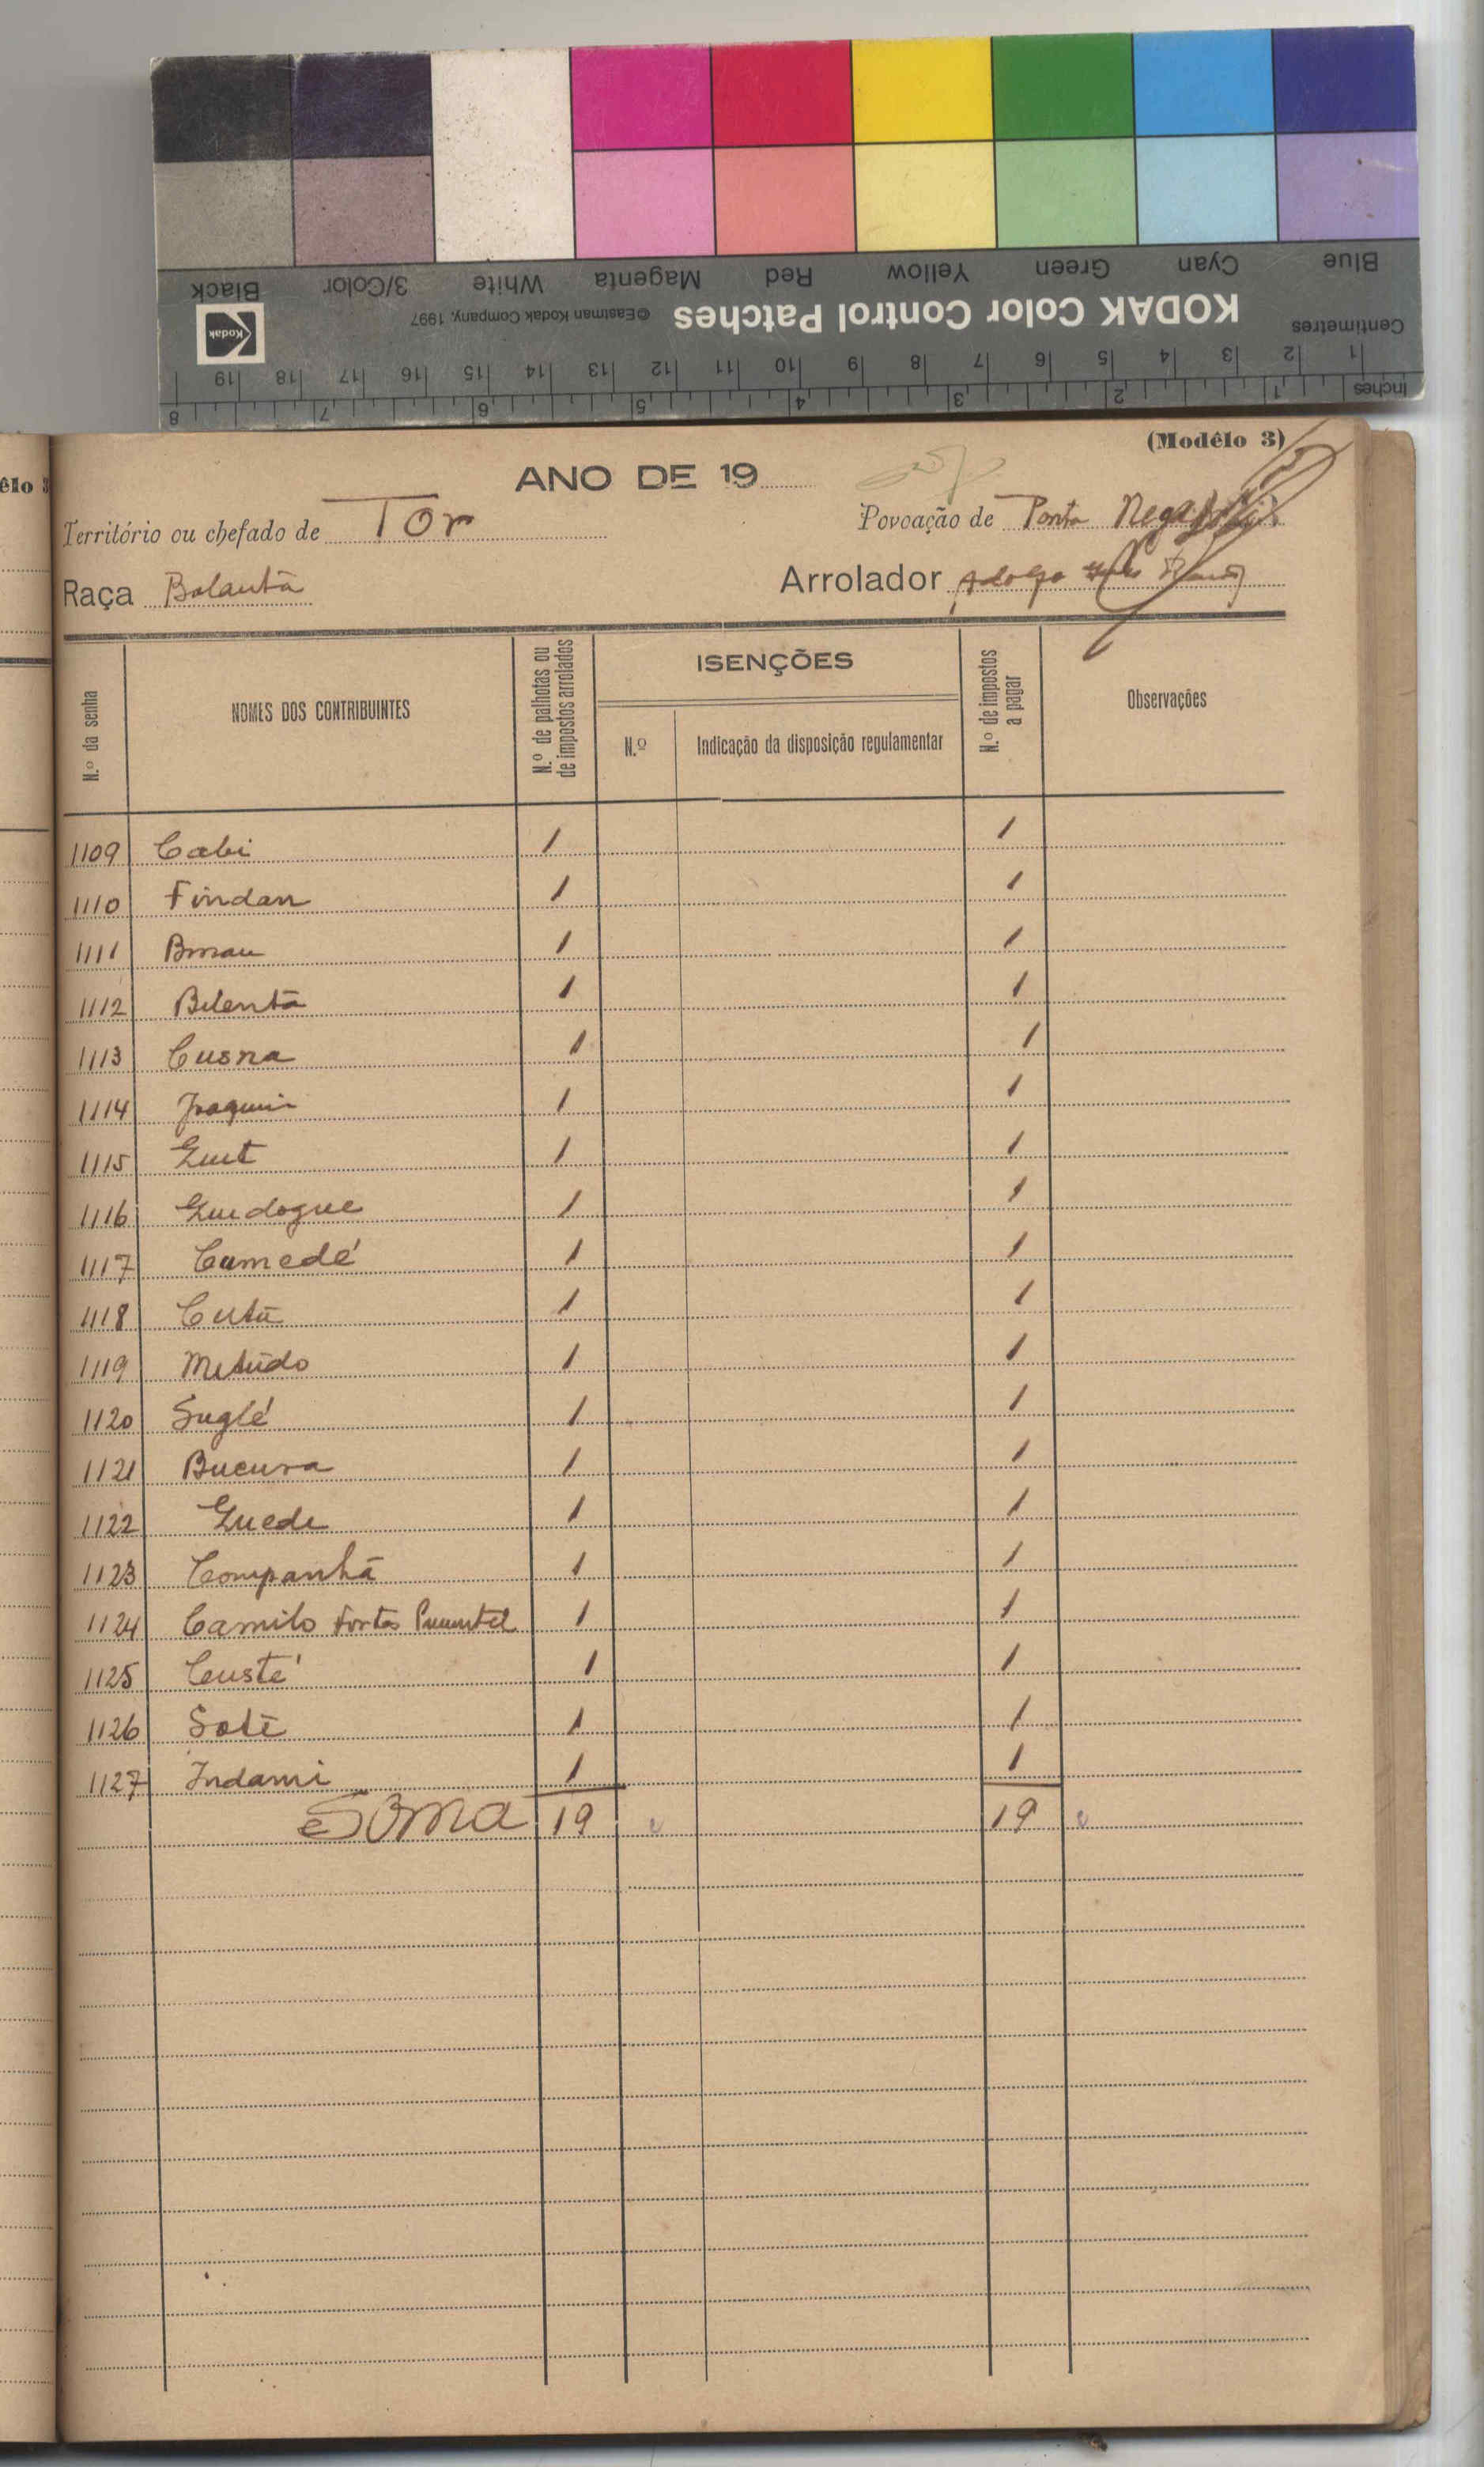 Blue Cyan Green Yellow Red Magenta White 3/Color Black
Centimetres KODAK Color Control Patches ©Eastman Kodak Company, 1997 Kodak
1 2 3 4 5 6 7 8 9 10 11 12 13 14 15 16 17 18 19
Inches 1 2 3 4 5 6 7 8
(Modêlo 3)
êlo 3
ANO DE 19
Território ou chefado de Tor Povoação de Ponta
Raça Balanta Arrolador Adolfo
N.º da senha NOMES DOS CONTRIBUINTES N.º de palhotas ou de impostos arrolados ISENÇÕES N.º de impostos a pagar Observações
N.º Indicação da disposição regulamentar
1109 Cabi 1 1
1110 Findan 1 1
1111 1 1
1112 Bilentã 1 1
1113 Cusna 1 1
1114 Joaquim 1 1
1115 Guit 1 1
1116 Guidogue 1 1
1117 Camedé 1 1
1118 Cutã 1 1
1119 Mitúdo 1 1
1120 Suglé 1 1
1121 Bucura 1 1
1122 Guede 1 1
1123 Companhã 1 1
1124 Camilo Fortes Pimentel 1 1
1125 Custé 1 1
1126 Soti 1 1
1127 Indami 1 1
Soma 19 19